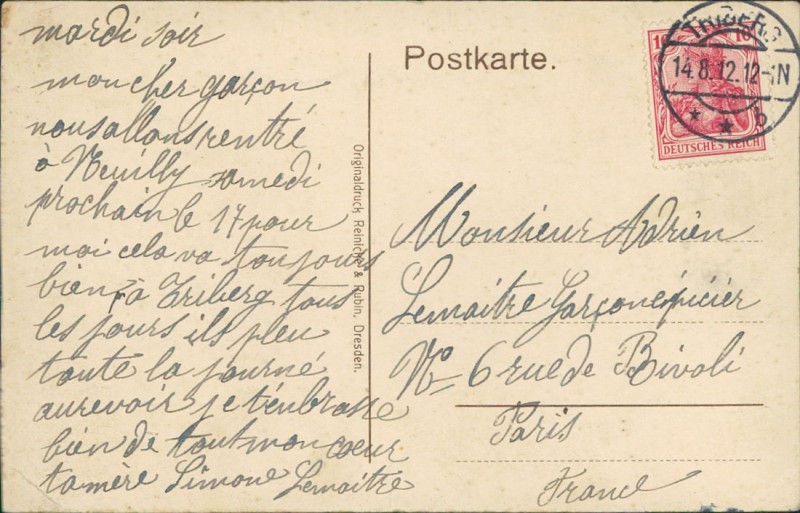 mardi soir
mon cher garçon
nous allons rentré
à Neuilly samedi
prochain le 17 pour
moi cela va toujours
bien à Triberg tous
les jours ils pleu
toute la journé
aurevoir je t'enbrasse
bien de tout mon cœur
ta mère Simone Lemaitre
Originaldruck Reinicke & Rubin, Dresden.
Postkarte.
10 10
DEUTSCHES REICH
TRIBERG
14.8.12.12-1N
* * b
Monsieur Adrien
Lemaitre Garçon épicier
No 6 rue de Rivoli
Paris
France